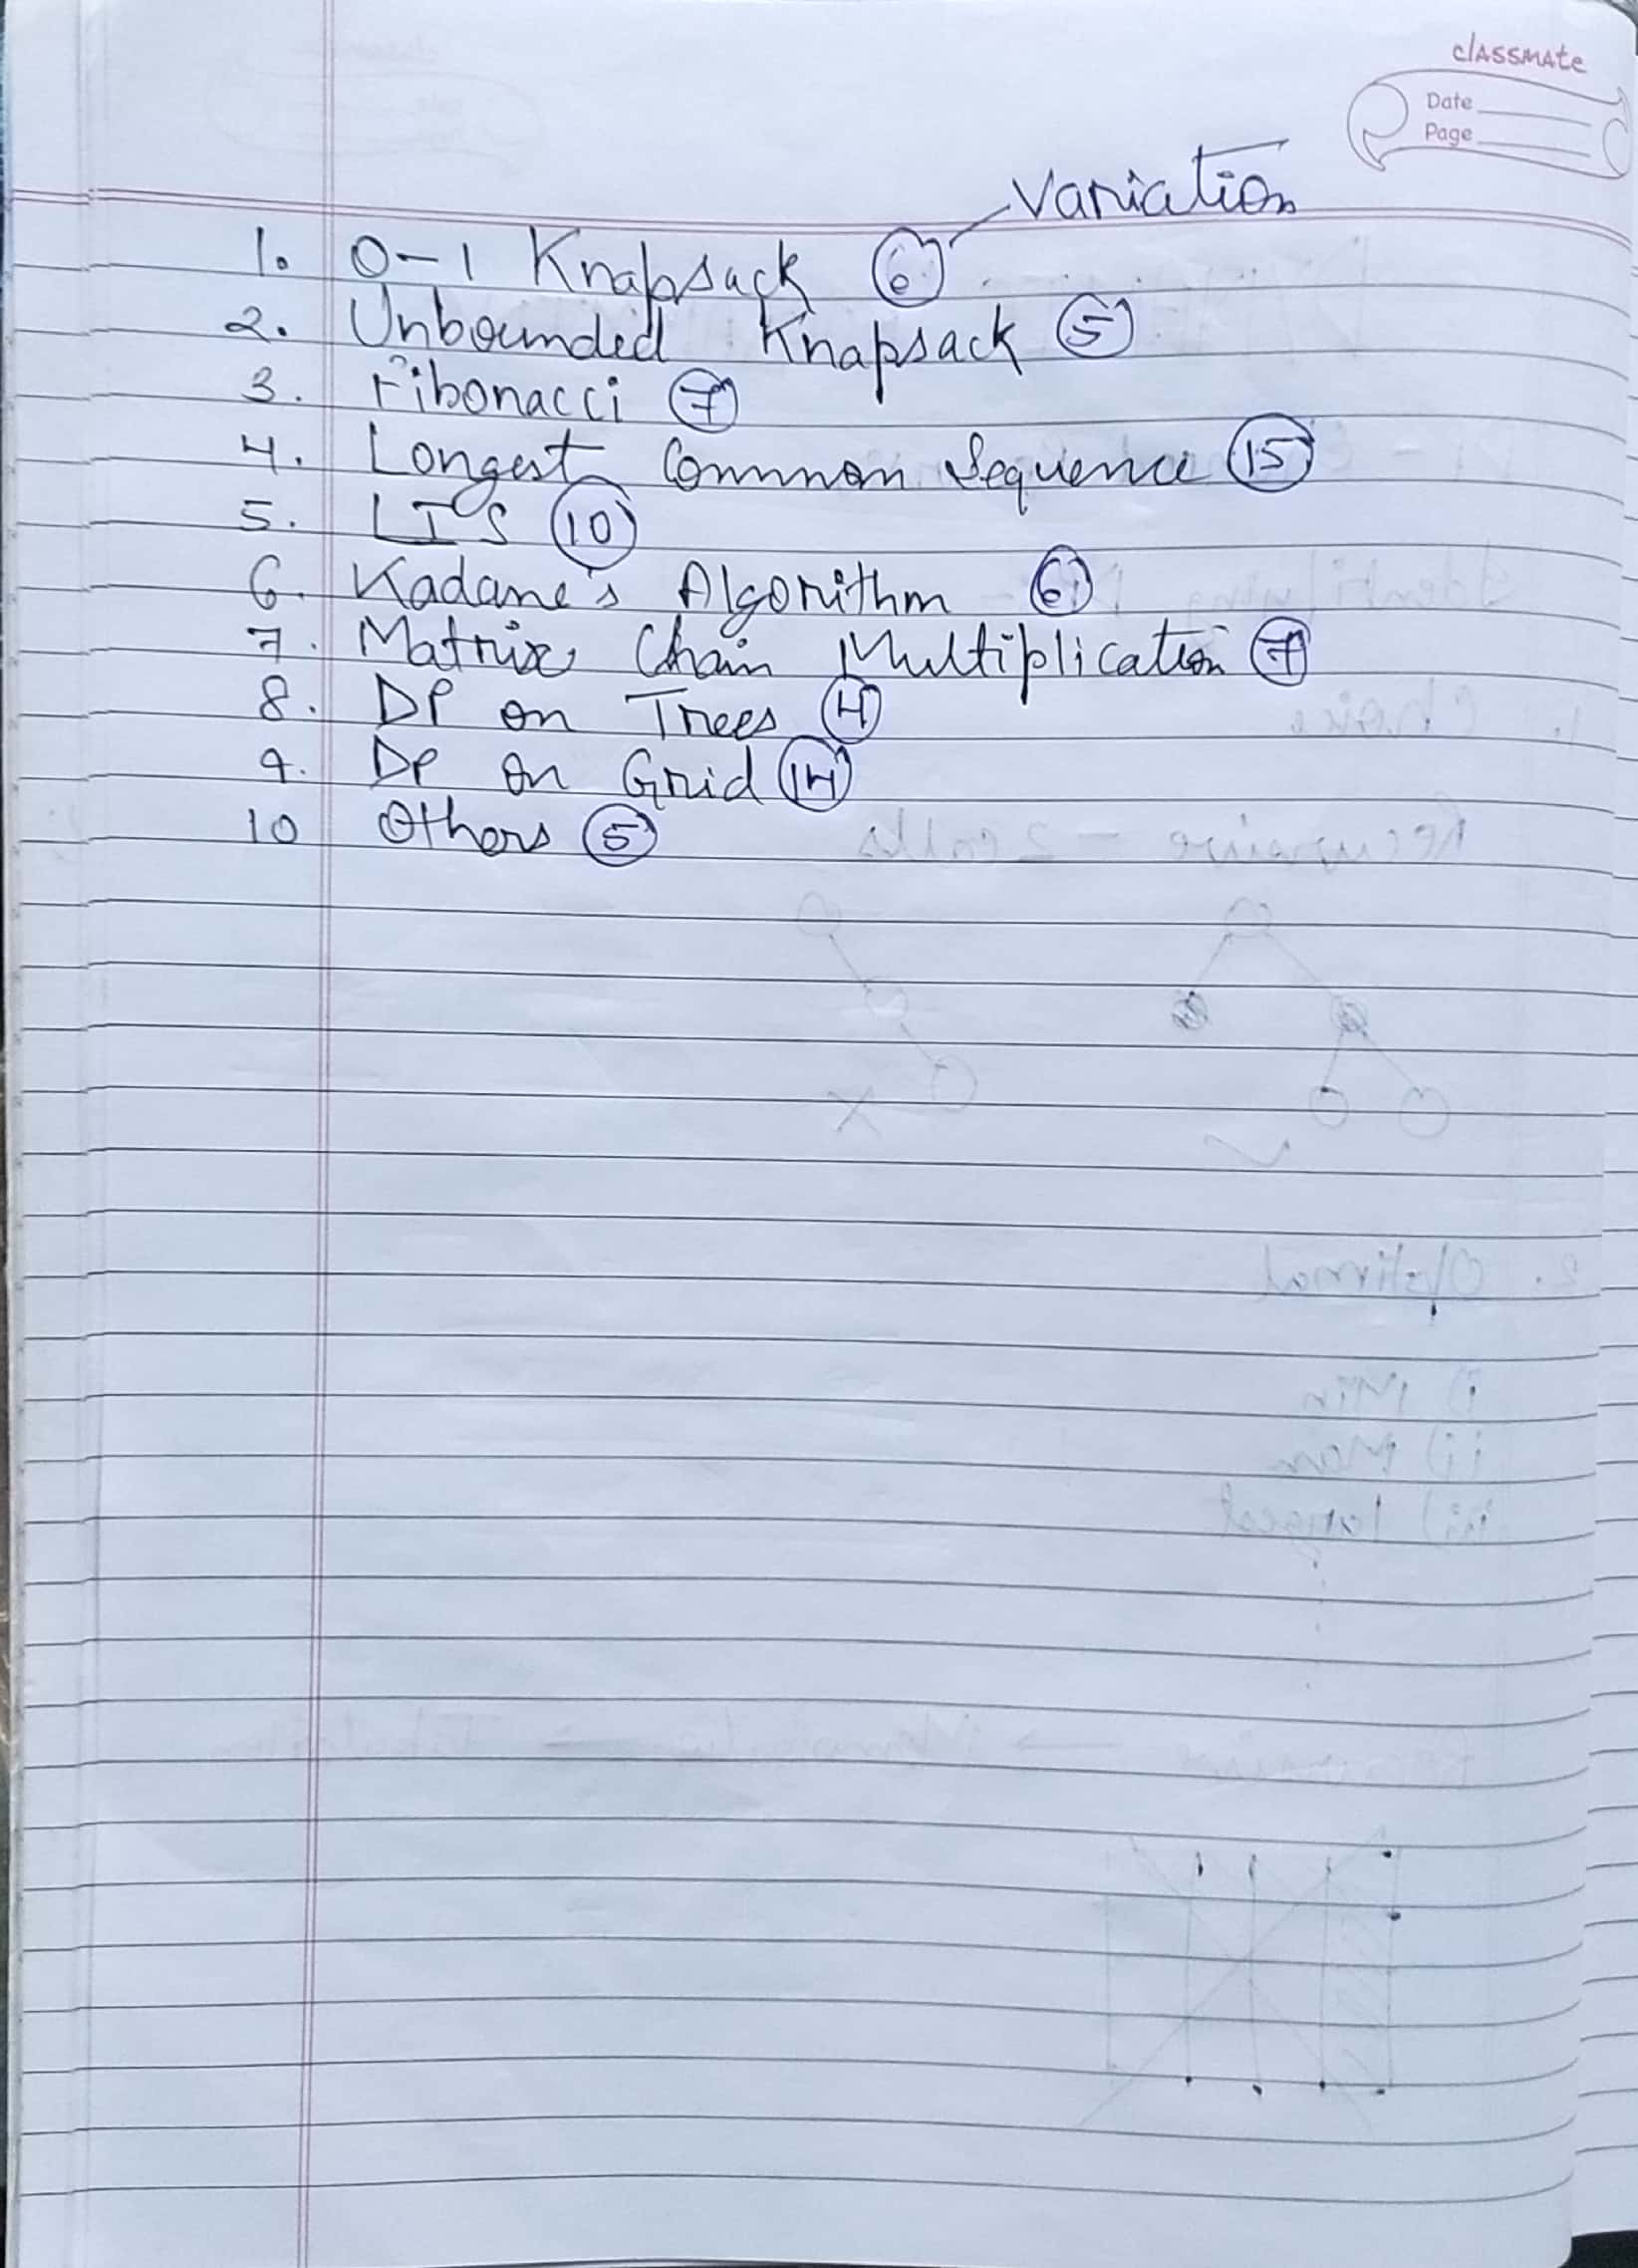 classmate
Date
Page
Variation
1. 0-1 Knapsack 6
2. Unbounded Knapsack 5
3. Fibonacci 7
4. Longest Common Sequence 15
5. LIS 10
6. Kadane's Algorithm 6
7. Matrix Chain Multiplication 7
8. DP on Trees 4
9. DP on Grid 14
10 Others 5